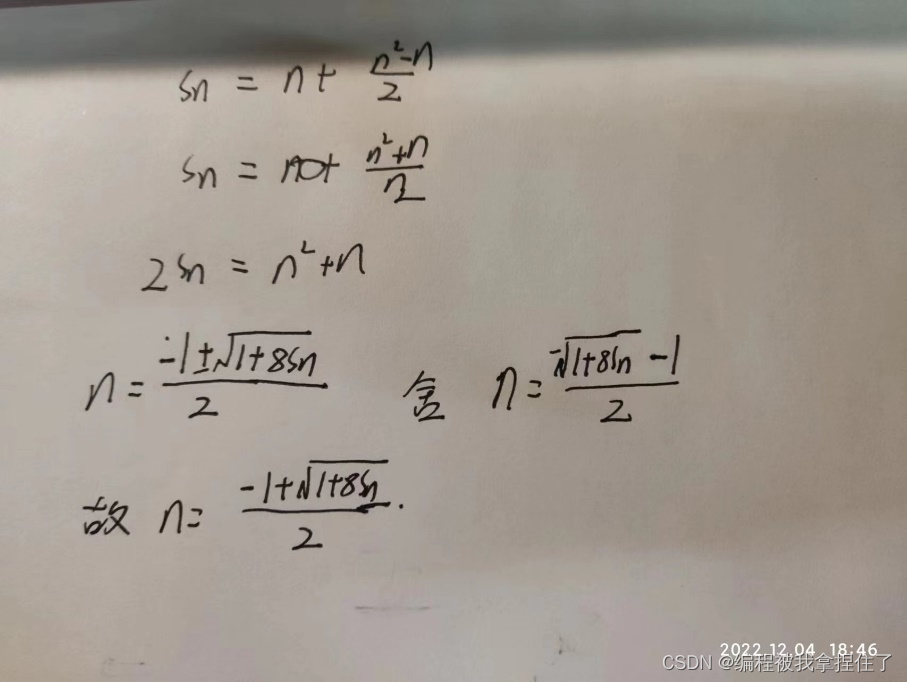 Sn = n + (n²-n)/2
Sn = (n²+n)/2
2Sn = n²+n
n = (-1±√(1+8Sn))/2 舍 n = (-√(1+8Sn) -1)/2
故 n = (-1+√(1+8Sn))/2.
2022.12.04 18:46
CSDN @编程被我拿捏住了